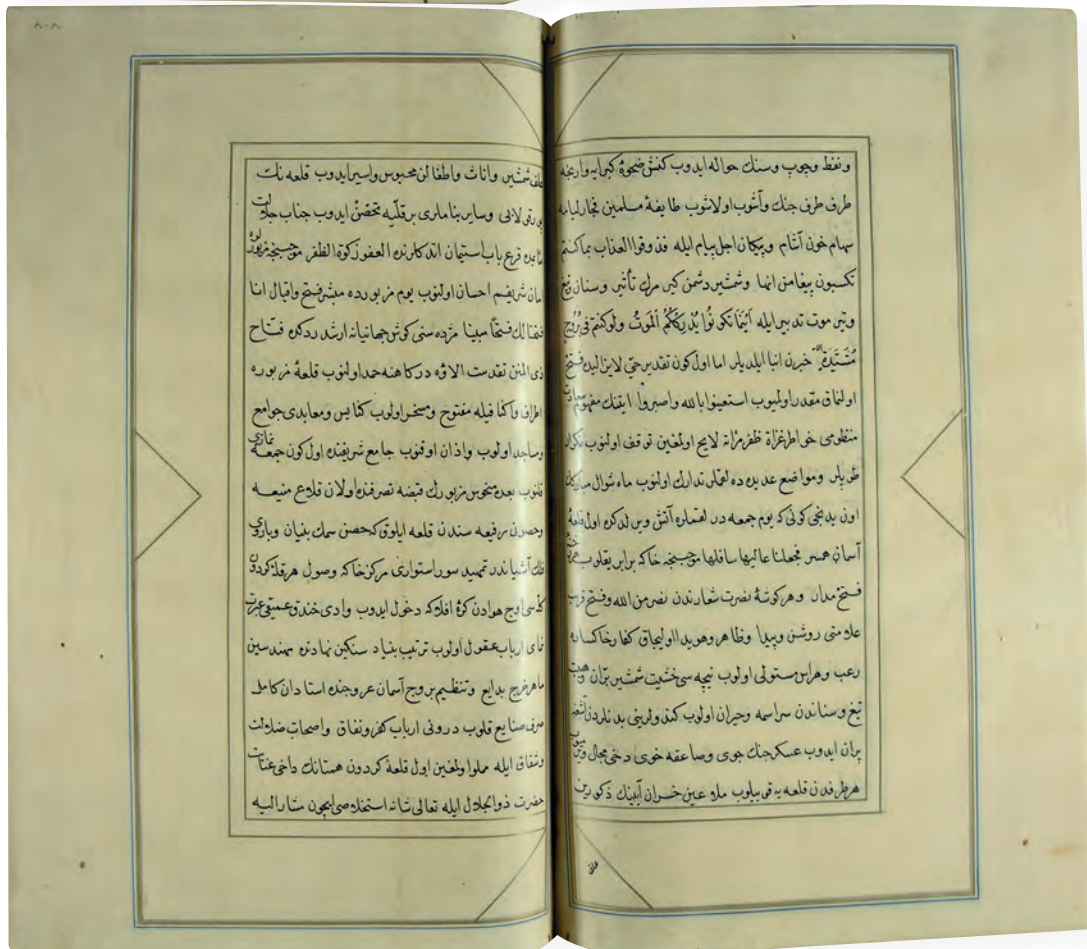 ونفط وچوب وسنك حواله ايدوب كنش ضحوهٔ كبرايه وارنجه
طرف طرف جنك وآشوب اولاشوب طايفهٔ مسلمين فجار لياما
سهام خون آشام وپيكان اجل پيام ايله فذوقوا العذاب بما كنتم
تكسبون پيغامن انها وشمشير دشمن كير مرك تأثير وسنان
وتير موت تدبير ايله اينما تكونوا يدرككم الموت ولو كنتم في بروج
مشيدة خبرن انبا ايلديلر اما اول كون تقدير حي لايزاليده فتح
اولنماق مقدر اولميوب استعينوا بالله واصبروا ايتنك مفهوم سعادت
منظومى خواطر غزاة ظفر مرآة لايح اولمغين توقف اولنوب تكرار
طوپلر ومواضع عديده ده لغملر تدارك اولنوب ماه شوال مباركك
اون يدنجى كونى كه يوم جمعه در لغملره آتش ويرلدكده اول قلعهٔ
آسمان همسر فجعلنا عاليها سافلها موجبنجه خاكه برابر يقلوب
فتح ميدان وهر كوشهٔ نصرت شعارندن نصر من الله وفتح قريب
علامتى روشن وپيدا وظاهر وهويدا اوليجاق كفار خاكساره
رعب وهراس مستولى اولوب نيجه سى خشيت شمشير بران وهيبت
تيغ وسناندن سراسمه وحيران اولوب كندولرينى بدنلردن
پران ايدوب عسكر جنك جوى وصاعقه خوى دخى مجال ويرميوب
هر طرفدن قلعه يه قويلوب ملاعين خسران آيينك ذكورين
علف
علف شمشير واناث واطفالن محبوس واسير ايدوب قلعه نك
پورقولابى وساير بناملرى بر قليه تحصن ايدوب جناب جلالت
مآبده قرع باب استيمان اتدكلرنده العفو زكوة الظفر موجبنجه مزبورلره
امان شريفم احسان اولنوب يوم مزبورده مبشر فتح واقبال انا
فتحنا لك فتحا مبينا مژده سنى كوش جهانيانه ارشد ردكده فتاح
ذى المنن تقدست الاؤه دركاهنه حمد اولنوب قلعهٔ مزبوره
اطراف واكنافيله مفتوح ومسخر اولوب كنايس ومعابدى جوامع
ومساجد اولوب واذان اوقنوب جامع شريفنده اول كون جمعه نمازى
قلنوب بعده منحوس مزبورك قبضه تصرفنده اولان قلاع منيعه
وحصون رفيعه سندن قلعه ايلوق كه حصن سمك بنيان وباروى
فلك آشياندر تمهيد سور استوارى مركز خاكه وصول هر قلهٔ كردون
سى اوج هوادن كرهٔ افلاكه دخول ايدوب وادى خندق عميقى عبرت
نماى ارباب عقول اولوب ترتيب بنياد سنكين نهادنده مهندسين
ماهر خرج بدايع وتنظيم بروج آسمان عروجنده استادان كامل
صرف صنايع قلوب درونى ارباب كفر ونفاق واصحاب ضلالت
وشقاق ايله مملوا ولمغين اول قلعهٔ كردون همستانك داخى عنايت
حضرت ذو الجلال ايله تعالى شانه استخلاصى ايچون مشار اليه
٨٠٨